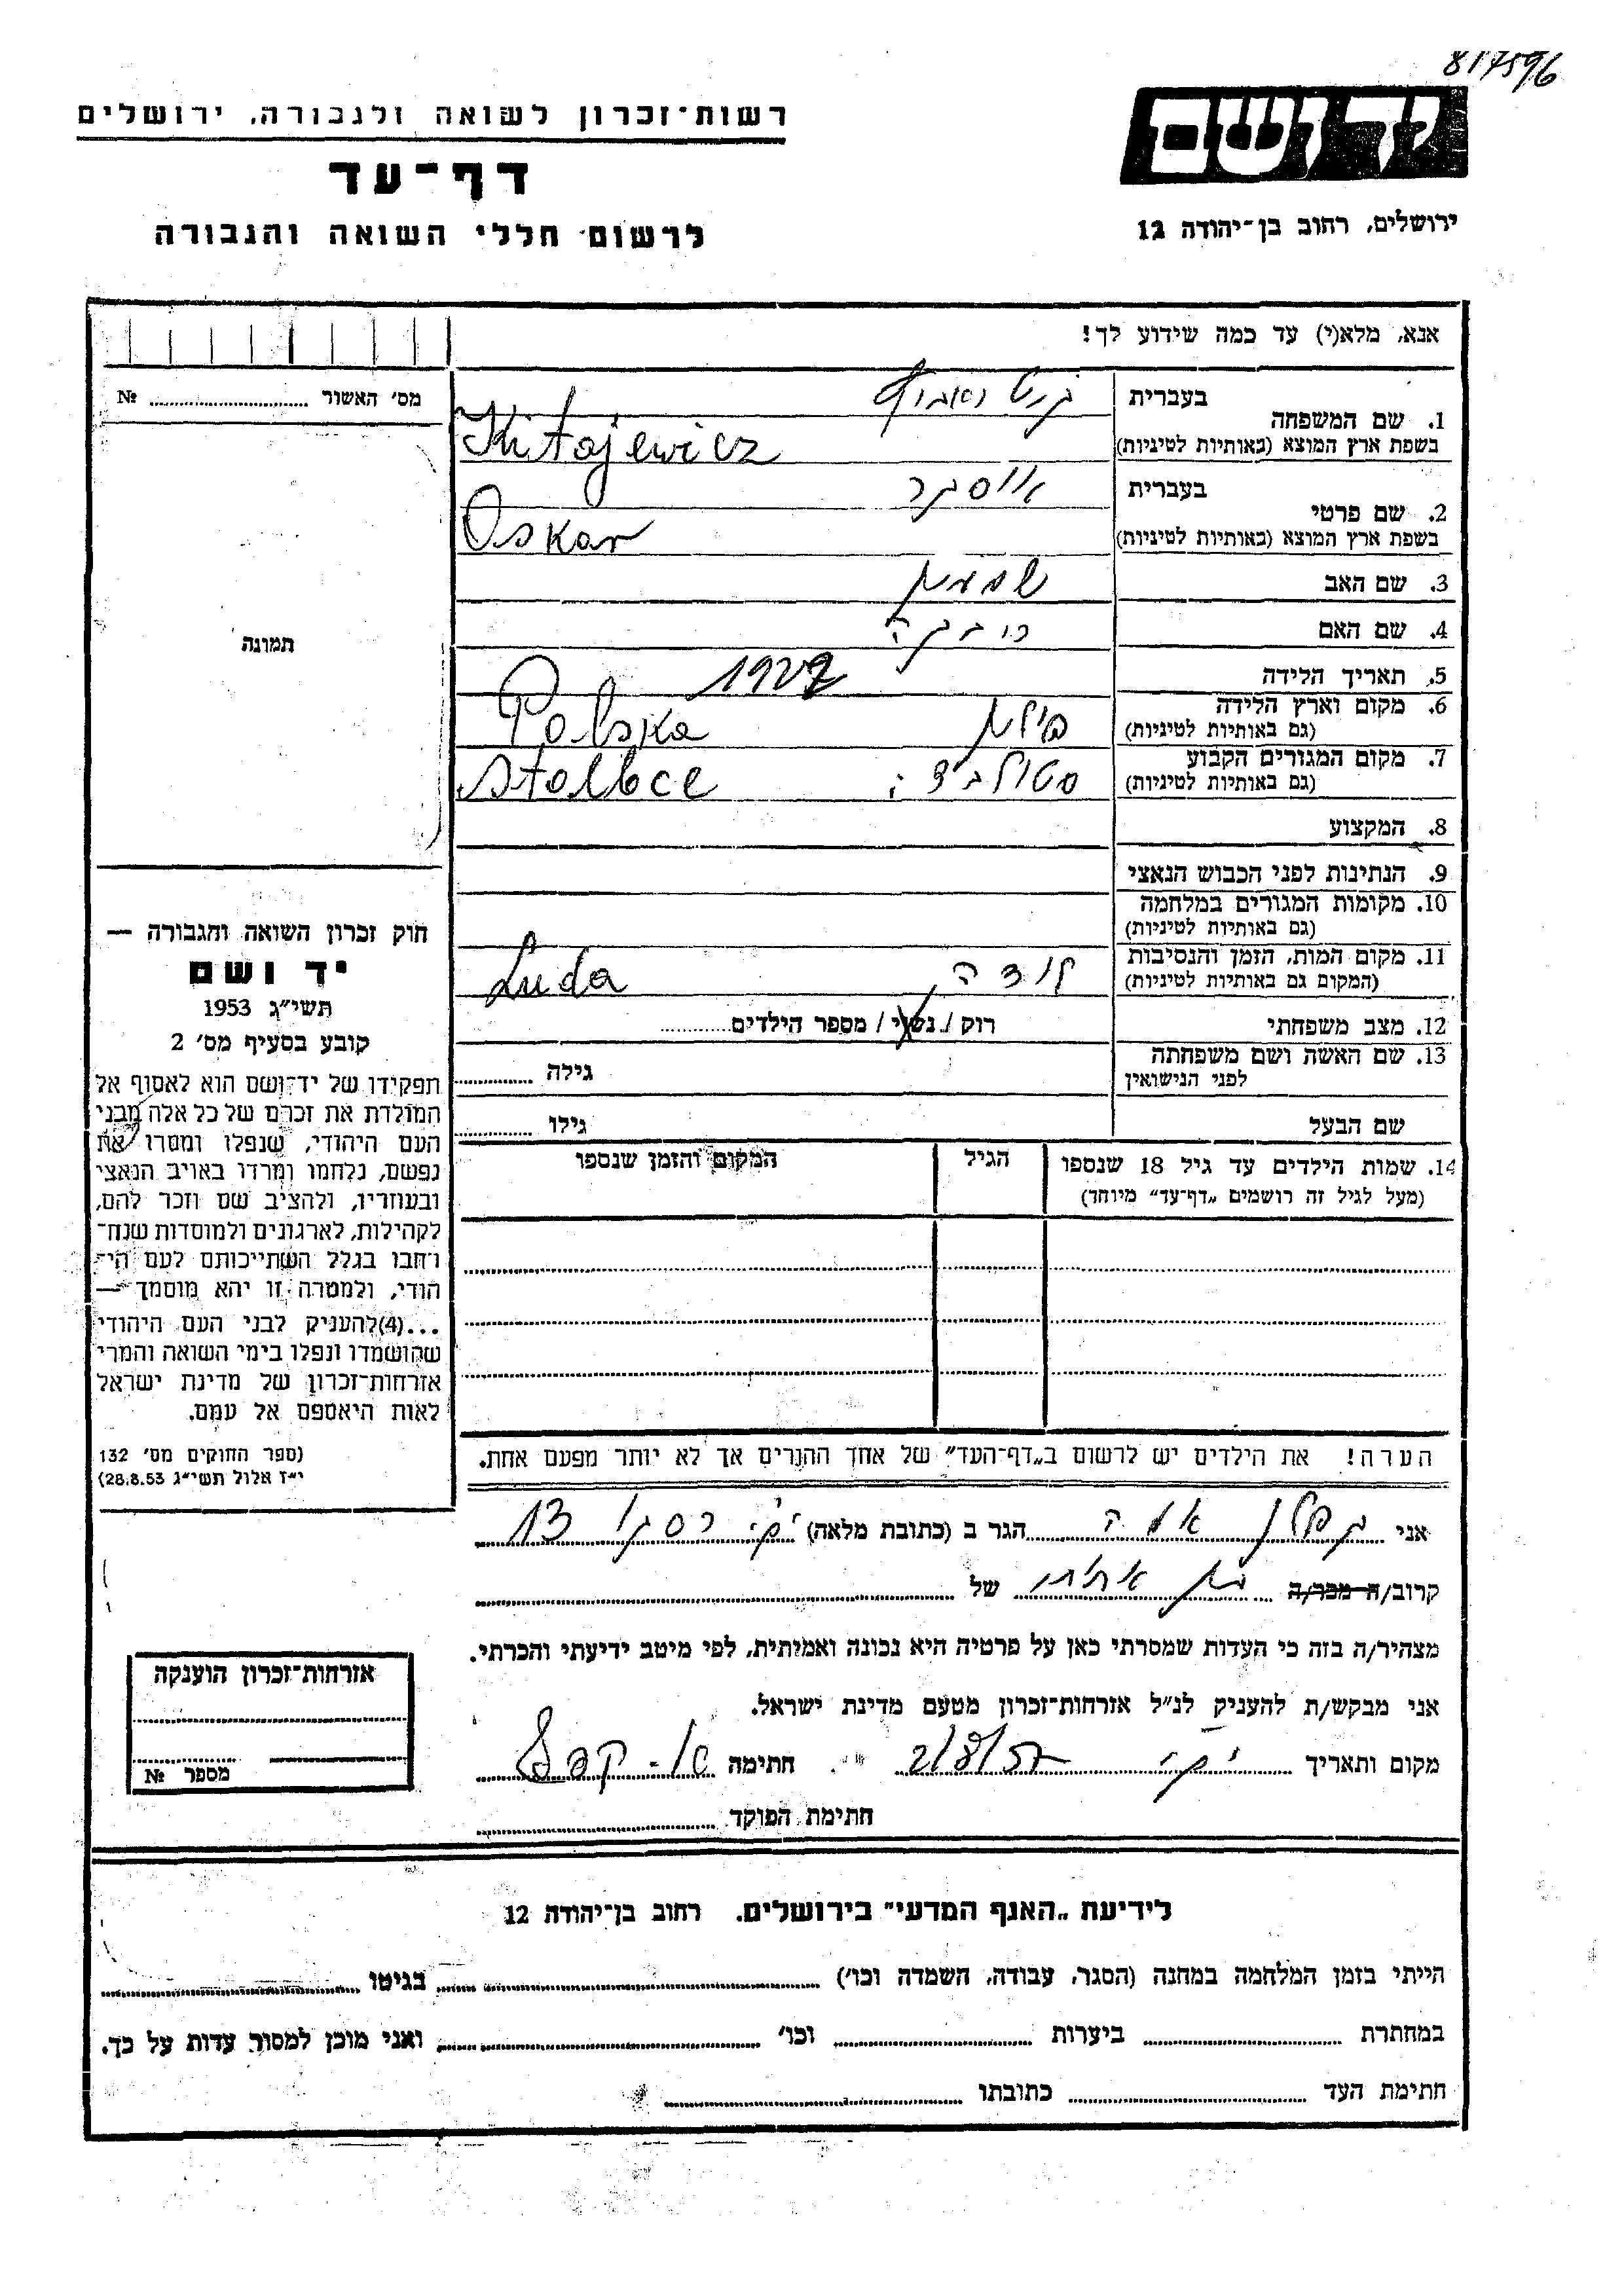 817596
יד ושם
ירושלים, רחוב בן־יהודה 12
רשות־זכרון לשואה ולגבורה, ירושלים
דף־עד
לרשום חללי השואה והגבורה
אנא, מלא(י) עד כמה שידוע לך!
מס׳ האשור № ............
תמונה
בעברית
1. שם המשפחה
בשפת ארץ המוצא (באותיות לטיניות) Kitajewicz
בעברית אוסקר
2. שם פרטי
בשפת ארץ המוצא (באותיות לטיניות) Oskar
3. שם האב
4. שם האם
5. תאריך הלידה 1927
6. מקום וארץ הלידה פולין Polska
(גם באותיות לטיניות)
7. מקום המגורים הקבוע סטולבצי Stolbce
(גם באותיות לטיניות)
8. המקצוע
9. הנתינות לפני הכבוש הנאצי
10. מקומות המגורים במלחמה
(גם באותיות לטיניות)
11. מקום המות, הזמן והנסיבות לידה Luda
(המקום גם באותיות לטיניות)
12. מצב משפחתי רוק / נשוי / מספר הילדים............
13. שם האשה ושם משפחתה
לפני הנישואין גילה ............
שם הבעל גילו ............
14. שמות הילדים עד גיל 18 שנספו הגיל המקום והזמן שנספו
(מעל לגיל זה רושמים „דף־עד” מיוחד)
הערה! את הילדים יש לרשום ב„דף־העד” של אחד ההורים אך לא יותר מפעם אחת.
חוק זכרון השואה והגבורה —
יד ושם
תשי״ג 1953
קובע בסעיף מס׳ 2
תפקידו של יד־ושם הוא לאסוף אל
המולדת את זכרם של כל אלה מבני
העם היהודי, שנפלו ומסרו את
נפשם, נלחמו ומרדו באויב הנאצי
ובעוזריו, ולהציב שם וזכר להם,
לקהילות, לארגונים ולמוסדות שנח־
רחבו בגלל השתייכותם לעם הי־
הודי, ולמטרה זו יהא מוסמך —
...(4) להעניק לבני העם היהודי
שהושמדו ונפלו בימי השואה והמרי
אזרחות־זכרון של מדינת ישראל
לאות היאספם אל עמם.
(ספר החוקים מס׳ 132
י״ז אלול תשי״ג 28.8.53)
אני קפלן הגר ב (כתובת מלאה) 13
קרוב/ה מכר/ה של ............
מצהיר/ה בזה כי העדות שמסרתי כאן על פרטיה היא נכונה ואמיתית, לפי מיטב ידיעתי והכרתי.
אני מבקש/ת להעניק לנ״ל אזרחות־זכרון מטעם מדינת ישראל.
מקום ותאריך חתימה
חתימת הפוקד ............
אזרחות־זכרון הוענקה
מספר №
לידיעת „האגף המדעי” בירושלים, רחוב בן־יהודה 12
הייתי בזמן המלחמה במחנה (הסגר, עבודה, השמדה וכו׳) ............ בגיטו ............
במחתרת ............ ביערות ............ וכו׳ ............ ואני מוכן למסור עדות על כך.
חתימת העד ............ כתובתו ............